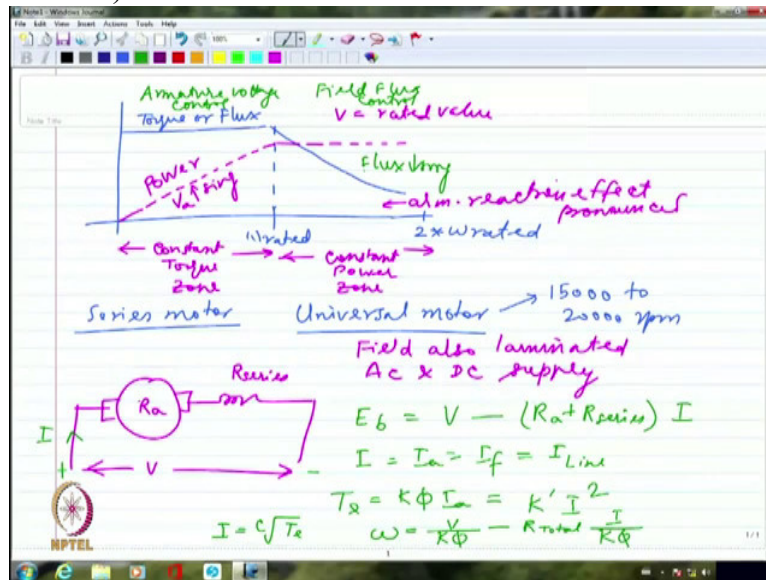 Note1 - Windows Journal
File Edit View Insert Actions Tools Help
100%
B I
Note Title
Armature voltage control
Field Flux control
Torque or Flux
V = rated value
Power
Va ↑sing
Flux ↓ing
← arm. reaction effect pronounced
ω rated
2 * ω rated
Constant Torque Zone
Constant Power Zone
Series motor
Universal motor → 15000 to 20000 rpm
Field also laminated
AC & DC supply
Ra
Rseries
I
+ V -
Eb = V - (Ra + Rseries) I
I = Ia = If = I Line
Te = Kφ Ia = K' I²
I = C√Te
ω = V/Kφ - R Total I/Kφ
NPTEL
1/1
1